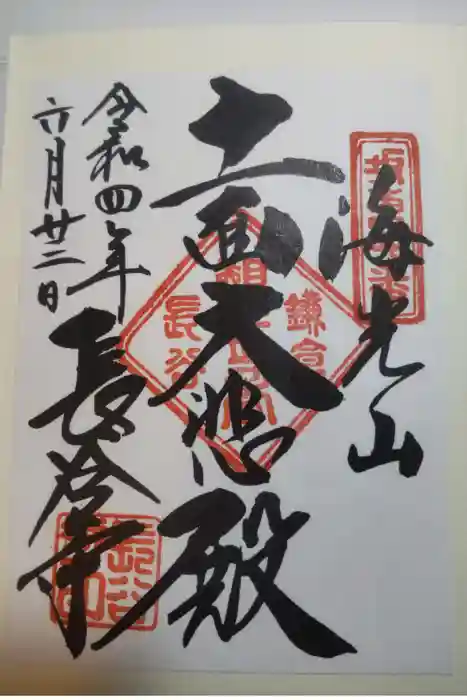 海光山
十一面大悲殿
令和四年
六月廿三日
長谷寺
鎌倉
長谷